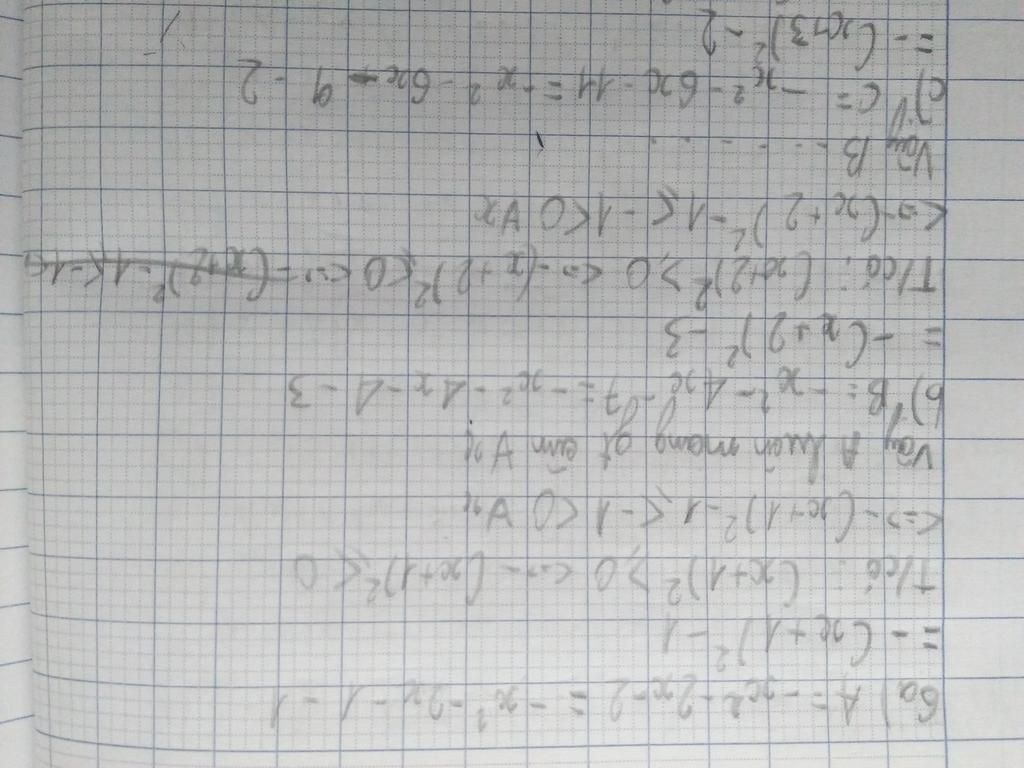 6a) A = -x² - 2x - 2 = -x² - 2x - 1 - 1
= -(x+1)² - 1
T/có: (x+1)² ⩾ 0 <=> -(x+1)² ⩽ 0
<=> -(x+1)² - 1 ⩽ -1 < 0 ∀x
Vậy A luôn mang gt âm ∀x
b) B = -x² - 4x - 7 = -x² - 4x - 4 - 3
= -(x+2)² - 3
T/có: (x+2)² ⩾ 0 <=> -(x+2)² ⩽ 0 <=> -(x+2)² - 1 ⩽ -1
<=> -(x+2)² - 1 ⩽ -1 < 0 ∀x
Vậy B .......
c) C = -x² - 6x - 11 = -x² - 6x - 9 - 2
= -(x+3)² - 2